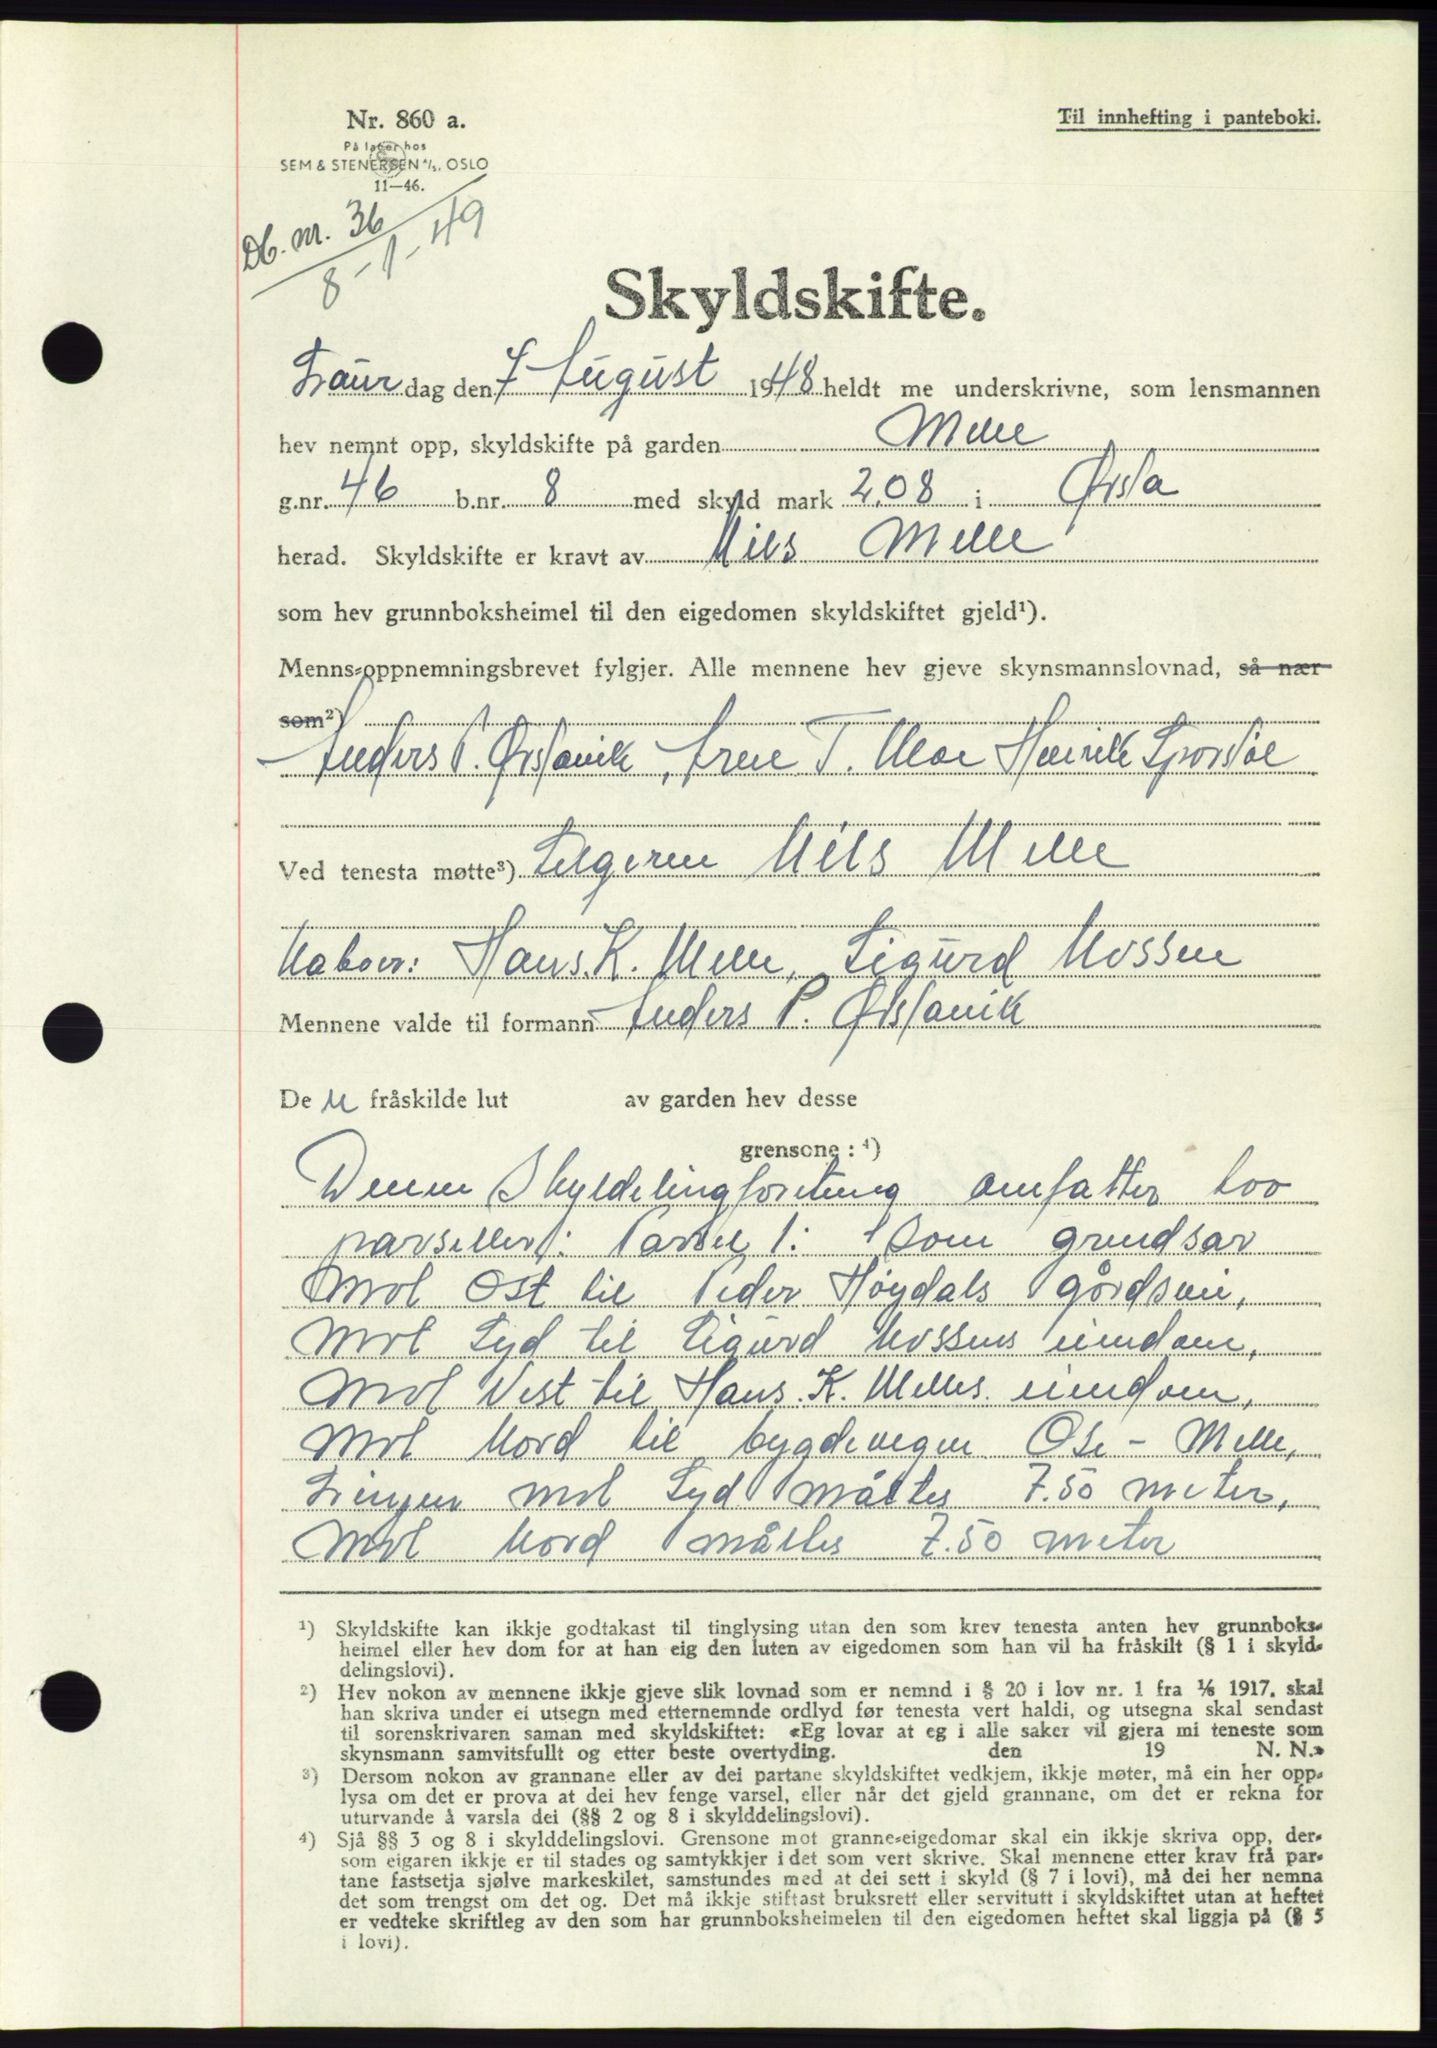 Nr. 860 a.
Til innhefting i panteboki.
På lager hos
SEM & STENERSEN A/S. OSLO
11—46.
Db. nr. 36
8-1-49
Skyldskifte.
Laur dag den 7 August 1948 heldt me underskrivne, som lensmannen
hev nemnt opp, skyldskifte på garden Melle
g.nr. 46 b.nr. 8 med skyld mark 2,08 i Ørsta
herad. Skyldskifte er kravt av Nils Melle
som hev grunnboksheimel til den eigedomen skyldskiftet gjeld¹).
Menns-oppnemningsbrevet fylgjer. Alle mennene hev gjeve skynsmannslovnad, så nær
som²)
Anders P. Ørstavik, T. Moe Henrik
Ved tenesta møtte³) Selgeren Nils Melle
Naboer: Hans. K. Melle, Sigurd Mossen
Mennene valde til formann Anders P. Ørstavik
De n fråskilde lut av garden hev desse
grensone : ⁴)
Denne Skyldelingforetning omfatter too
parseller: Parsel 1: Som grendsar
Mot Ost til Peder Høydals gårdsvei,
Mot Syd til Sigurd Mossens eiendom,
Mot Vest til Hans. K. Melles. eiendom,
Mot Nord til bygdevegen Ose - Melle,
Linjen mot Syd måltes 7.50 meter,
Mot Nord måltes 7.50 meter
¹) Skyldskifte kan ikkje godtakast til tinglysing utan den som krev tenesta anten hev grunnboks-
heimel eller hev dom for at han eig den luten av eigedomen som han vil ha fråskilt (§ 1 i skyld-
delingslovi).
²) Hev nokon av mennene ikkje gjeve slik lovnad som er nemnd i § 20 i lov nr. 1 fra ⅙ 1917. skal
han skriva under ei utsegn med etternemnde ordlyd før tenesta vert haldi, og utsegna skal sendast
til sorenskrivaren saman med skyldskiftet: «Eg lovar at eg i alle saker vil gjera mi teneste som
skynsmann samvitsfullt og etter beste overtyding. den 19 N. N.»
³) Dersom nokon av grannane eller av dei partane skyldskiftet vedkjem, ikkje møter, må ein her opp-
lysa om det er prova at dei hev fenge varsel, eller når det gjeld grannane, om det er rekna for
uturvande å varsla dei (§§ 2 og 8 i skylddelingslovi).
⁴) Sjå §§ 3 og 8 i skylddelingslovi. Grensone mot granne-eigedomar skal ein ikkje skriva opp, der-
som eigaren ikkje er til stades og samtykkjer i det som vert skrive. Skal mennene etter krav frå par-
tane fastsetja sjølve markeskilet, samstundes med at dei sett i skyld (§ 7 i lovi), må dei her nemna
det som trengst om det og. Det må ikkje stiftast bruksrett eller servitutt i skyldskiftet utan at heftet
er vedteke skriftleg av den som har grunnboksheimelen til den eigedomen heftet skal liggja på (§ 5
i lovi).